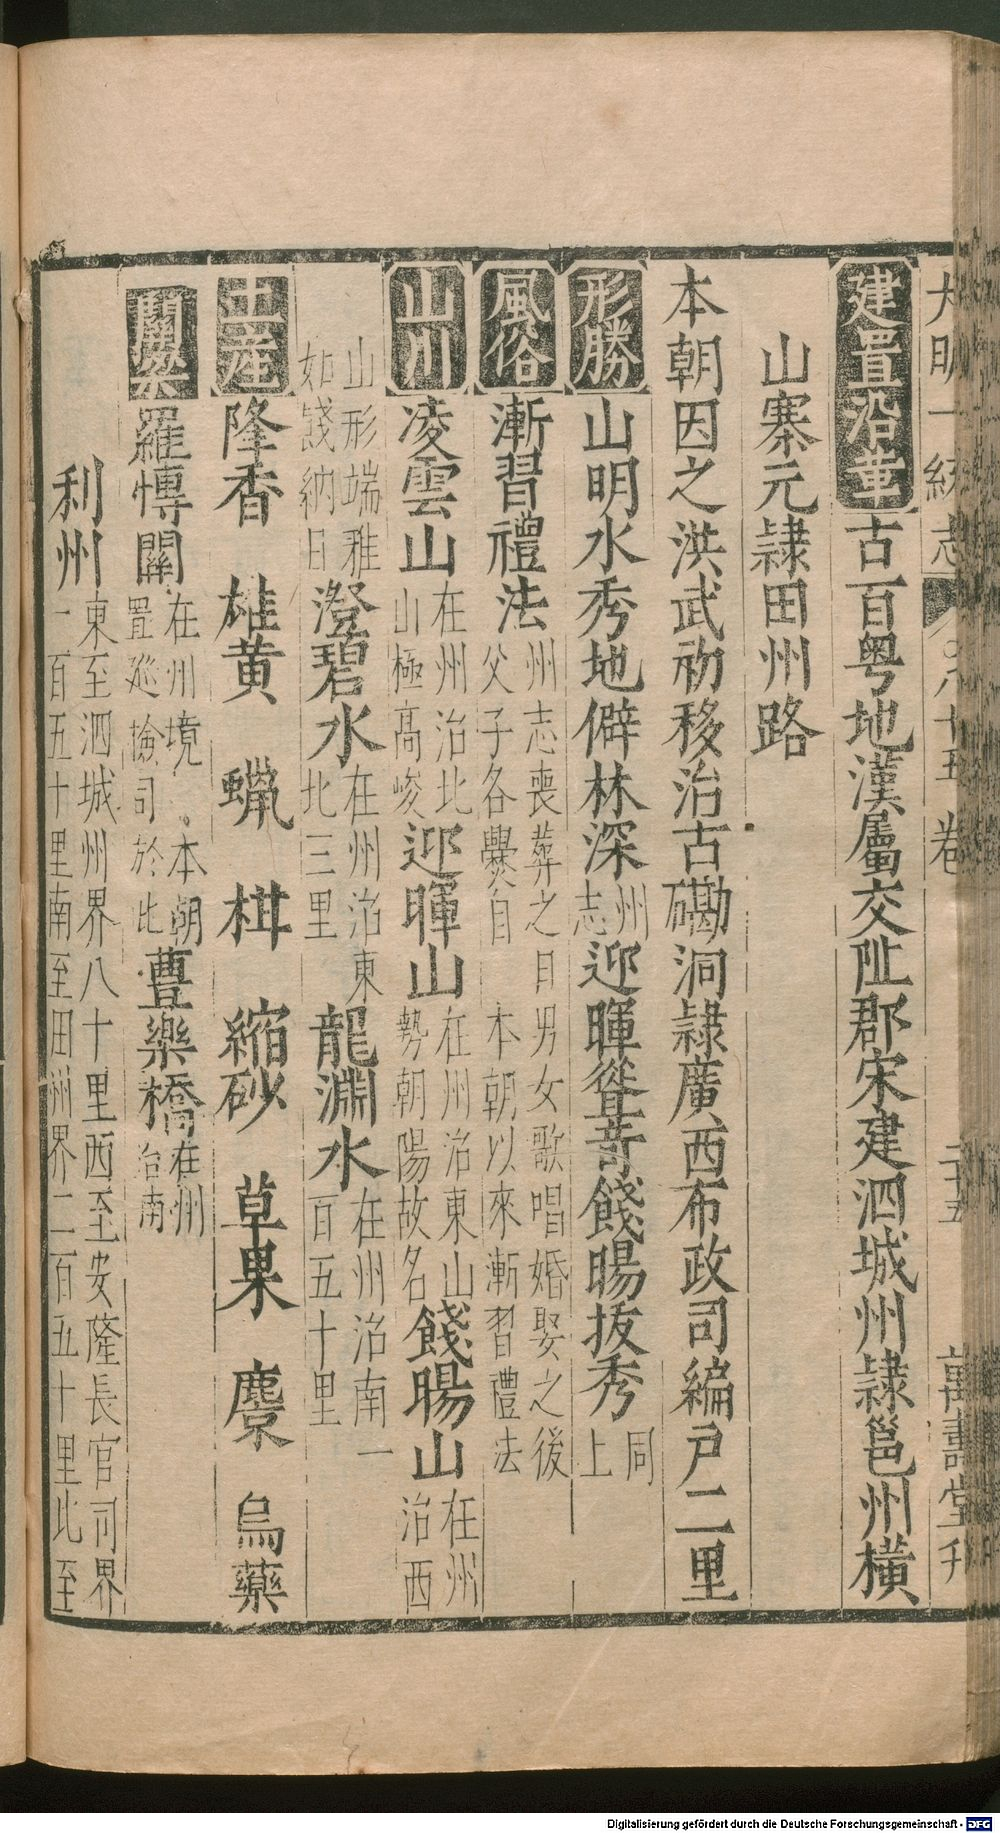 大明一統志 八十五卷 二十五 萬壽堂刋
建置沿革 古百粤地漢屬交阯郡宋建泗城州隷邕州橫
山寨元隷田州路
本朝因之洪武初移治古磡洞隷廣西布政司編戸二里
形勝 山明水秀地僻林深 州志 迎暉聳竒餞暘拔秀 同上
風俗 漸習禮法 州志喪葬之日男女歌唱婚娶之後父子各爨自本朝以來漸習禮法
山川 凌雲山 在州治北山極高峻 迎暉山 在州治東山勢朝陽故名 餞暘山 在州治西
山形端雅如餞納日 澄碧水 在州治東北三里 龍淵水 在州治南一百五十里
土産 降香 雄黄 蠟 椒 縮砂 草果 麖 烏藥
關梁 羅博關 在州境本朝置廵撿司於此 豊樂橋 在州治南
利州 東至泗城州界八十里西至安隆長官司界一百五十里南至田州界二百五十里北至
Digitalisierung gefördert durch die Deutsche Forschungsgemeinschaft - DFG